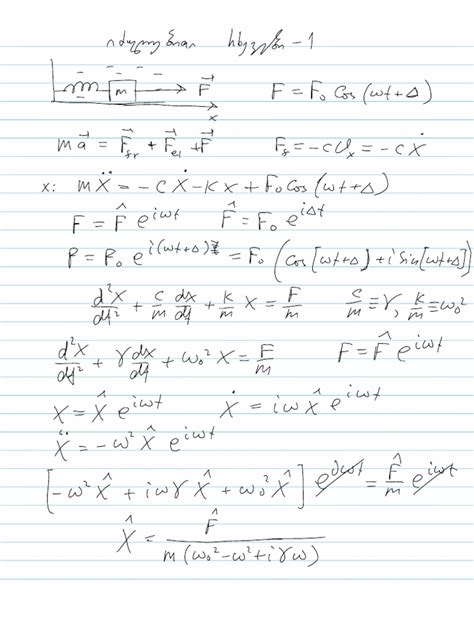 იძულებითი რხევები - 1
m F⃗ F = F₀ Cos (ωt+Δ)
x
m a⃗ = F⃗_fr + F⃗_el + F⃗ F_f = -c υₓ = -c Ẋ
x: m Ẍ = -c Ẋ - K x + F₀ Cos (ωt+Δ)
F = F̂ e^{iωt} F̂ = F₀ e^{iΔt}
F = F₀ e^{i(ωt+Δ)} = F₀ (Cos [ωt+Δ] + i Sin [ωt+Δ])
d²X/dt² + c/m dx/dt + K/m X = F/m c/m ≡ γ, K/m ≡ ω₀²
d²X/dt² + γ dx/dt + ω₀² X = F/m F = F̂ e^{iωt}
X = X̂ e^{iωt} Ẋ = iω X̂ e^{iωt}
Ẍ = -ω² X̂ e^{iωt}
[-ω² X̂ + iωγ X̂ + ω₀² X̂] e^{iωt} = F̂/m e^{iωt}
X̂ = F̂/m(ω₀² - ω² + iγω)